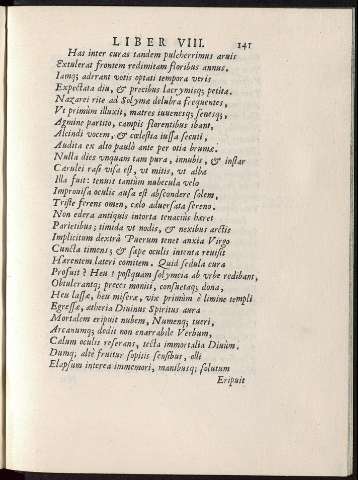 LIBER VIII. 141
Has inter curas tandem pulcherrimus aruis
Extulerat frontem redimitam floribus annus.
Iamq; aderant votis optati tempora veris
Expectata diu, & precibus lacrymisq; petita.
Nazarei rite ad Solymæ delubra frequentes,
Vt primùm illuxit, matres iuuenesq; senesq;,
Agmine partito, campis florentibus ibant,
Alcindi vocem, & cœlestia iussa secuti,
Audita ex alto paulò ante per otia brumæ.
Nulla dies vnquam tam pura, innubis, & instar
Cærulei rasi visa est, vt mitis, vt alba
Illa fuit: tenuit tantùm nubecula velo
Improuisa oculis ausa est abscondere solem,
Triste ferens omen, cælo aduersata sereno.
Non edera antiquis intorta tenaciùs hæret
Parietibus; timida vt nodis, & nexibus arctis
Implicitum dextrâ Puerum tenet anxia Virgo
Cuncta timens; & sæpe oculis intenta reuisit
Hærentem lateri comitem. Quid sedula cura
Profuit? Heu! postquam solymeia ab vrbe redibant,
Obtulerantq; preces moniti, consuetaq; dona,
Heu lassæ, heu miseræ, vix primùm è limine templi
Egressæ, ætheria Diuinus Spiritus aura
Mortalem eripuit nubem, Numenq; tueri,
Arcanumq; dedit non enarrabile Verbum,
Cælum oculis referans, tecta immortalia Diuûm.
Dumq; altè fruitur sopitis sensibus, olli
Elapsum interea immemori, manibusq; solutum
Eripuit